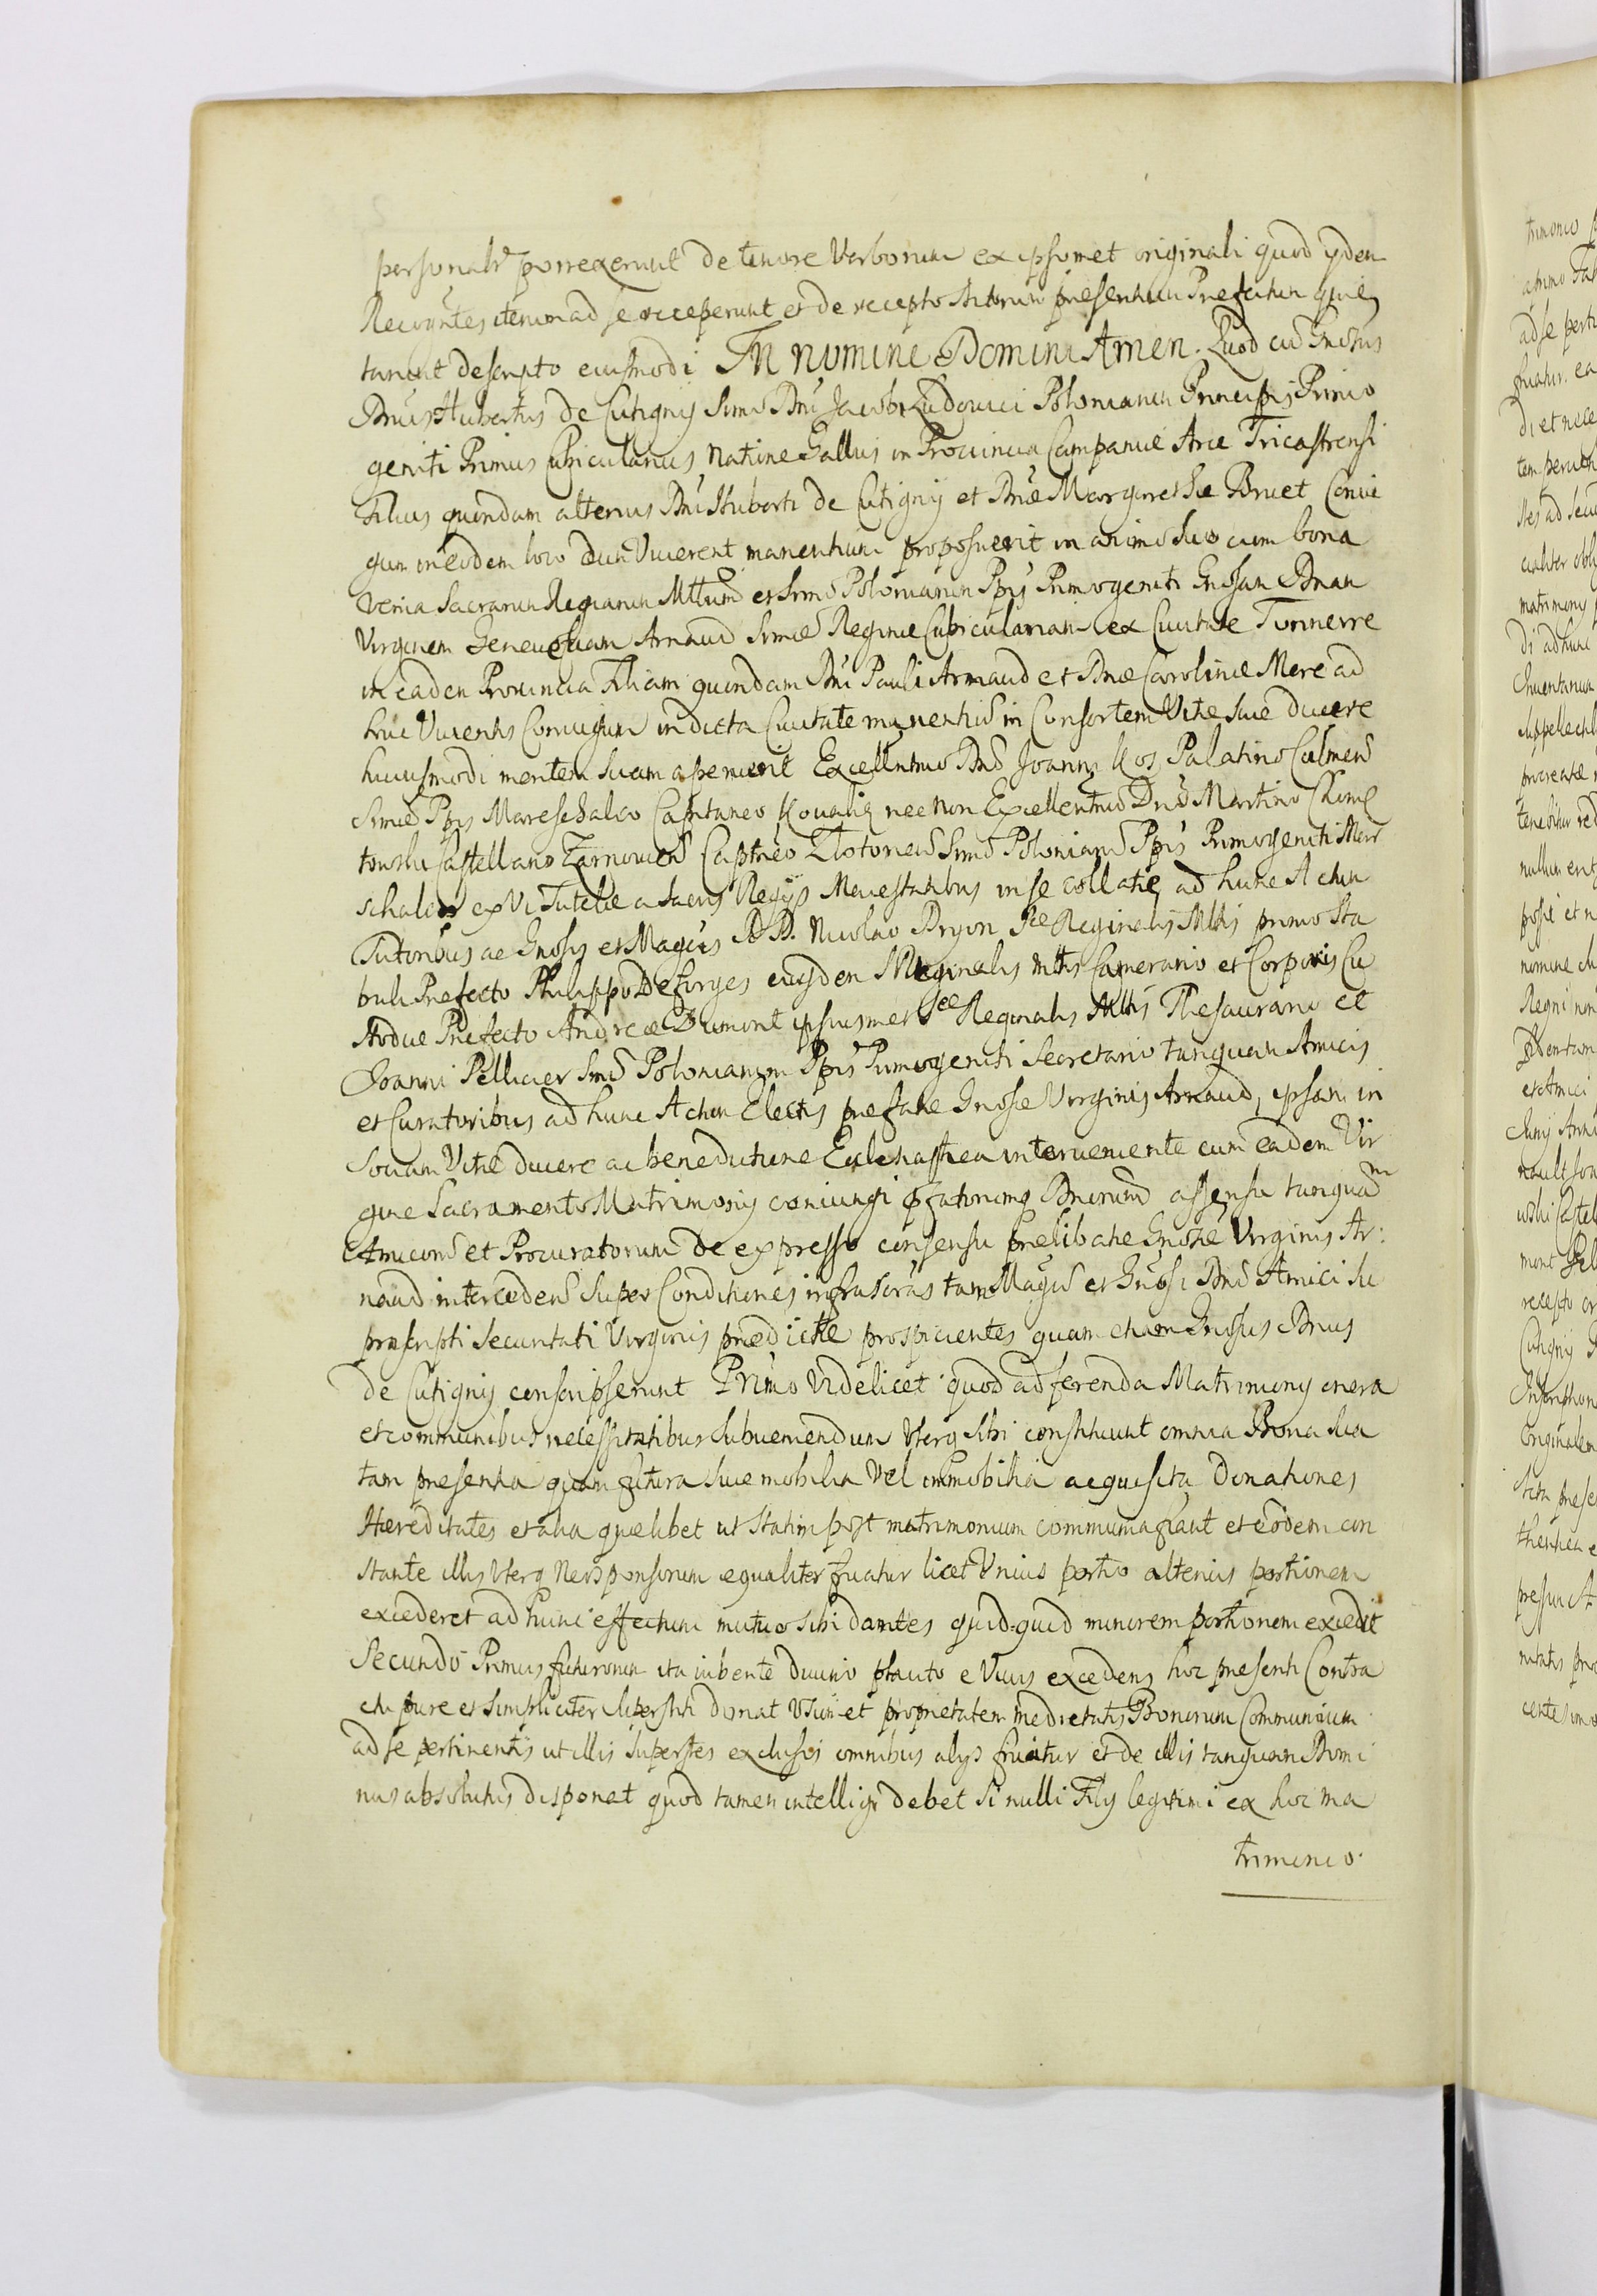 personalr porrexerunt de tenore Verborum ex ipsomet originali quod ijdem
Recogntes iterum ad se receperunt et de recepto Actorum presentium Prefectum quie
tarunt descripto eiusmodi In nomine Domini Amen. Quod cum Gnosus
Dnus Hubertus de Cutigny Smi Dni Jacobi Ludovici Poloniarum Principis Primo
geniti Primus Cubicularius Natione Gallus in Provincia Campaniæ Arce Tricastrensi
Filius quondam alterius Dni Huberti de Cutigny et Dnæ Margarethæ Bruet Coniu
gum in eodem loco dum Viverent manentium proposuerit in animo suo cum bona
venia Sacrarum Regiarum Mttum et Smi Poloniarum Ppis Primogeniti Gnosam Dnam
Virginem Genevefam Arnaud Smæ Reginæ Cubiculariam ex Civitate Tonnerre
in eadem Provincia Filiam quondam Dni Pauli Arnaud et Dnæ Carolinæ Mere ad
huc Viventis Coniugum in dicta Civitate manentium in Consortem Vitæ suæ ducere
huiusmodi mentem suam aperuerit Excellmo Dno Joanni Kos Palatino Culmen
Smi Ppis Mareschalco Capitaneo Kovalis nec non Excellentmo Dno Martino Chom
towski Castellano Zarnovien Captneo Zlotorien Smi Poloniarum Ppis Primogeniti Mar
schalco ex Vi Tutelæ a Sacris Regijs Maiestatibus in se collatæ ad hunc Actum
Tutoribus ac Gnosis et Magcis DD. Nicolao Bryon Sce Reginalis Mttis primo Sta
buli Prefecto Philippo Desforges eiusdem Reginalis Mttis Camerario et Corporis Cu
stodiæ Prefecto Andreæ Dumont ipsiusmet Sce Reginalis Mttis Thesaurario et
Joanni Pellicier Smi Poloniarum Ppis Primogeniti Secretario tanquam Amicis
et Curatoribus ad hunc Actum Electis prefatæ Gnosæ Virginis Arnaud, ipsam in
Sociam Vitæ ducere ac benedictione Ecclesiastica interveniente cum eadem Vir
gine Sacramento Matrimonij coniungi pfatorumq Dnorum assensu tanquam
Amicorum et Procuratorum de expresso consensu prælibatæ Gnosæ Virginis Ar:
naud interceden super Conditiones infrascras tam Magci et Gnosi Dni Amici su
præscripti Securitati Virginis prædictæ prospicientes quam etiam Gnosus Dnus
de Cutigny conscripserunt Primo Videlicet quod ad ferenda Matrimonij onera
et communibus necessitatibus subveniendum Uterq sibi constituunt omnia Bona sua
tam presentia quam futura sive mobilia vel immobilia acquisita Donationes
Hæreditates et alia quælibet ut statim post matrimonium communia fiant et eodem con
stante illis Uterq Neosponsorum equaliter fruatur licet Unius portio alterius portionem
excederet ad hunc effectum mutuo sibi dantes quid-quid minorem portionem excedit
Secundo Primus futurorum ita iubente divino placito e Vivis excedens hoc presenti Contra
ctu pure et simpliciter superstiti donat Usum et proprietatem medietatis Bonorum Communium
ad se pertinentis ut illis superstes exclusis omnibus alijs fruatur et de illis tanquam Domi
nus absolutus disponat quod tamen intelligi debet si nulli Filij legitimi ex hoc ma
trimonio.